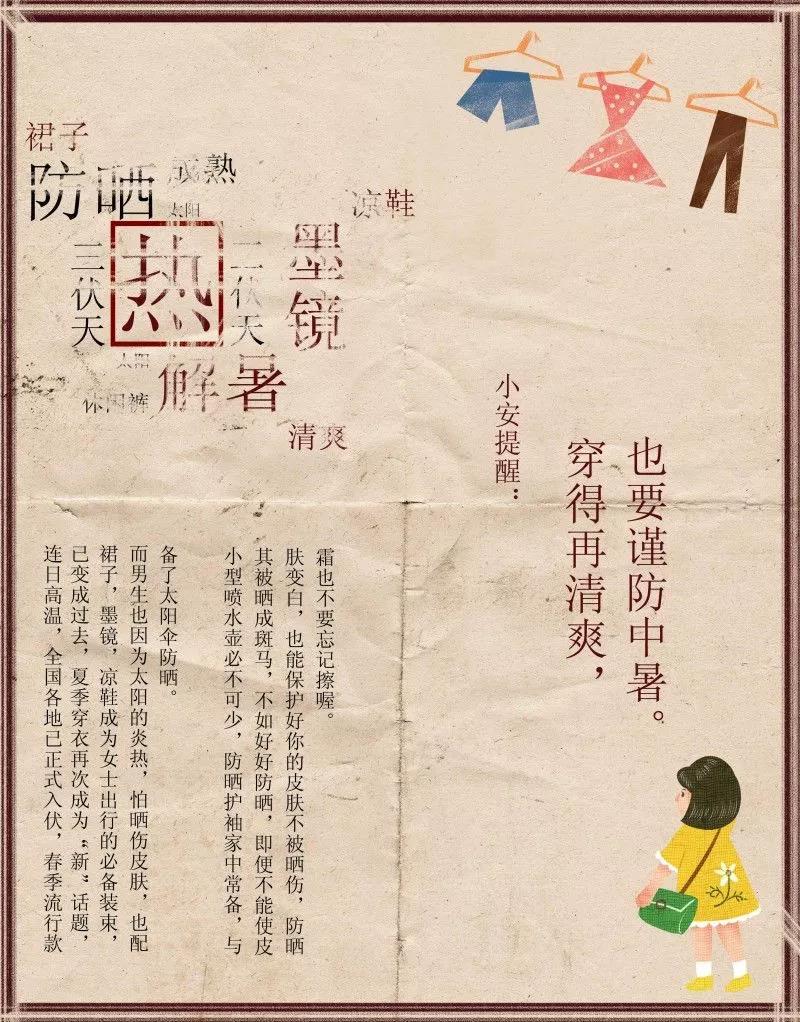 裙子
防晒
成熟
太阳
凉鞋
三伏天
热
二伏天
墨镜
太阳
休闲裤
解暑
清爽
小安提醒：
穿得再清爽，
也要谨防中暑。
连日高温，全国各地已正式入伏，春季流行款
已变成过去，夏季穿衣再次成为“新”话题，
裙子，墨镜，凉鞋成为女士出行的必备装束，
而男生也因为太阳的炎热，怕晒伤皮肤，也配
备了太阳伞防晒。
小型喷水壶必不可少，防晒护袖家中常备，与
其被晒成斑马，不如好好防晒，即便不能使皮
肤变白，也能保护好你的皮肤不被晒伤，防晒
霜也不要忘记擦喔。